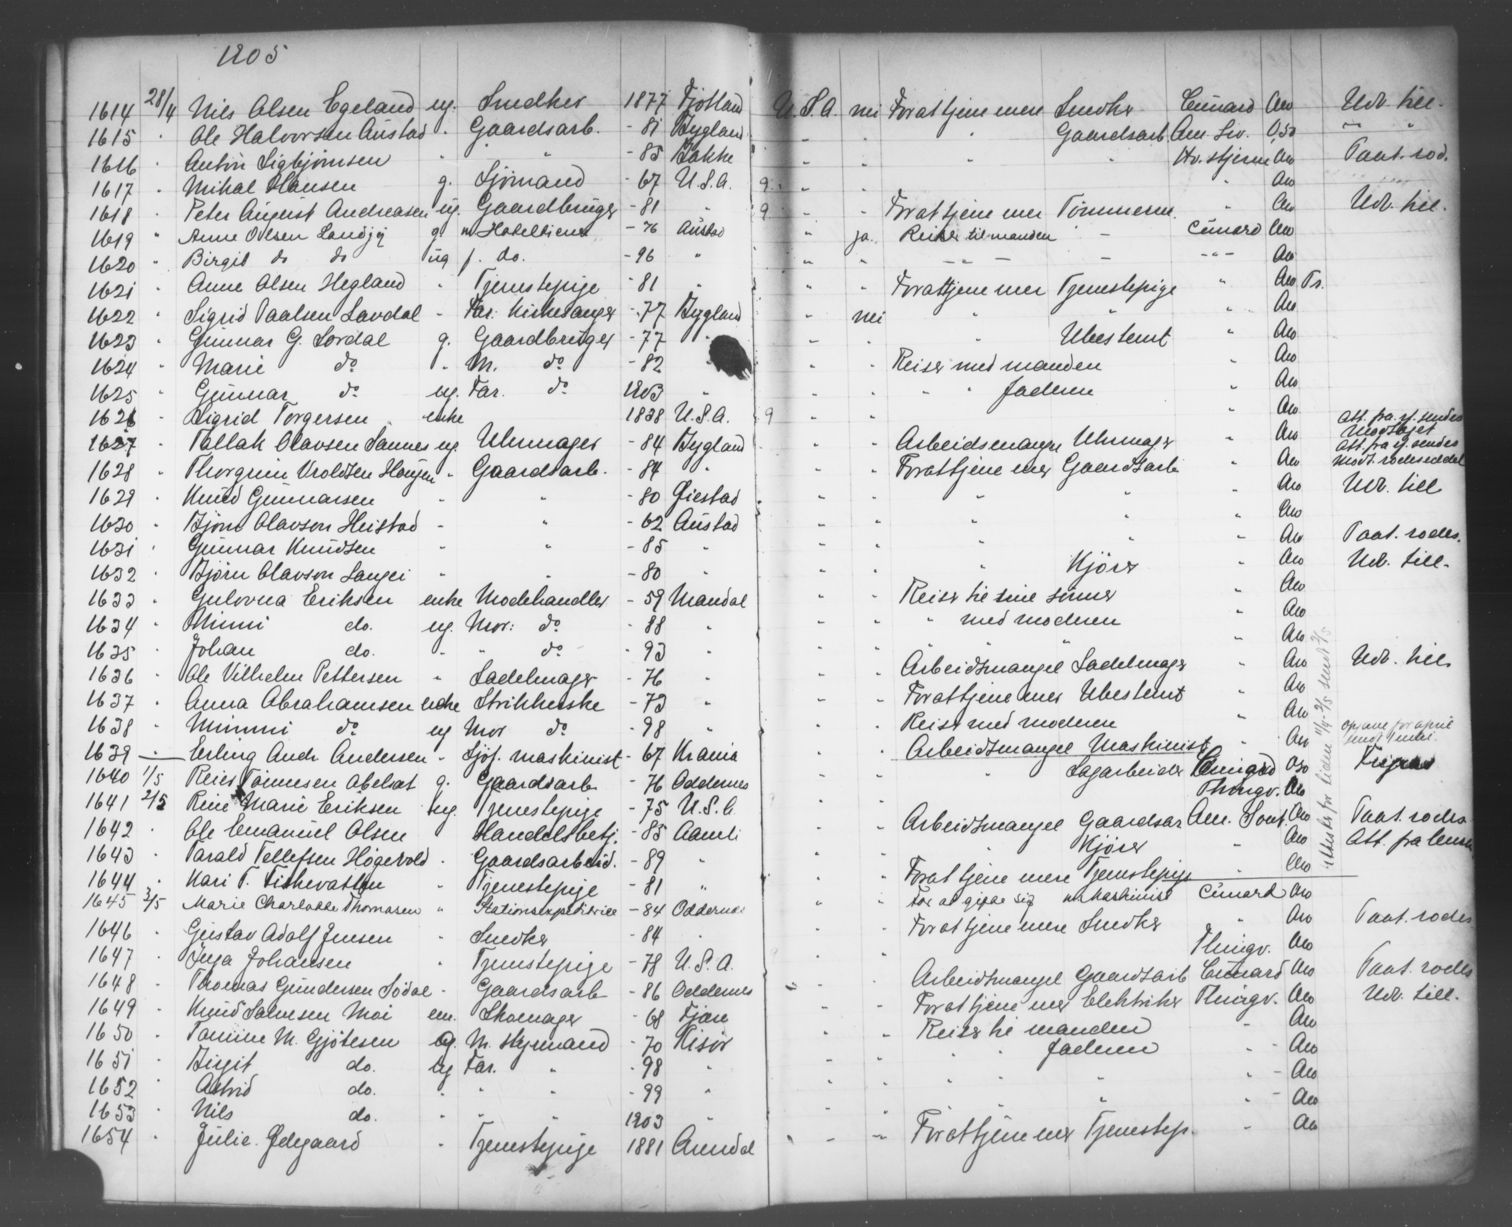 1905
1614 28/4 Nils Olsen Egeland ug. Smedker 1877 Fjotland U.S.A. nei Forattjene mere Smedker Cunard Aeo Udv. till.
1615 " Ole Halvorsen Austad " Gaardsarb. - 81 Bygland " " " Gaardsarb. Am. Lin. Oso " "
1616 " Anton Sigbjörnsen " " - 85 Bakke " " " " Hv. stjerne Aeo Taat. rod.
1617 " Mikal Hansen g. Sjömand - 67 U.S.A. 9 " " " Aeo
1618 " Peter August Andreasen ug. Gaardbruger - 81 " 9 " " Forattjene mer Tömmerm. " Aeo Udv. till.
1619 " Anne Olsen g m Hotelltiener - 76 Austad " ja. Reiser til manden - Cunard Aeo
1620 " Birgit do do ug f. do. - 96 " " " - " - - " - Aeo
1621 " Anne Olsen Hegland " Tjenestepige - 81 " " " Forattjene mer Tjenestepige " Aeo Fr.
1622 " Sigrid Paalsen Lavdal - Far. Kirkesanger - 77 Bygland " nei " " " Aeo
1623 " Gunnar G. Lordal g. Gaardbruger - 77 " " " Ubestemt " Aeo
1624 " Marie do " M. do - 82 " " Reiser med manden Aeo
1625 " Gunnar do ug. Far. do 1903 " " " faderen Aeo
1626 " Sigrid Torgersen enke 1838 U.S.A. 9 " " Aeo Att. fra sendes
1627 " Tallak Olavsen Sannes ug. Uhrmager - 84 Bygland " " Arbeidsmangel Uhrmager " Aeo Att. fra sendes
1628 " Thorgrim Uroldsen Haugen " Gaardsarb. - 84 " " " Forattjene mer Gaardsarb " Aeo
1629 " Knud Gunnarsen " " - 80 Øiestad " " " " " Aeo Udv. till
1630 " Björn Olavson Heistad - " - 62 Austad " " " " " Aeo
1631 " Gunnar Knudsen " " - 85 " " " " " " Aeo Taat. rodes.
1632 " Björn Olavson Langei " " - 80 " " " " Kjörer " Aeo Udv. till.
1633 " Gulovna Eriksen enke Modehandler - 59 Mandal " " Reiser til sine sönner " Aeo
1634 " Minni do. ug. Mor: do - 88 " " " " med moderen " Aeo
1635 " Johan do. " " do - 93 " " " " " " Aeo
1636 " Ole Vilhelm Pettersen " Sadelmager - 76 " " " Arbeidsmangel Sadelmager " Aeo Udv. till
1637 " Anna Abrahamsen enke Strikkerske - 73 " " " Forattjene mer Ubestemt " Aeo
1638 " Minni do ug Mor do - 98 " " " Reiser med moderen " Aeo
1639 Erling Andr Andersen " Sjöf. maskinist - 67 Krania " " Arbeidsmangel Maskinist " Aeo
1640 1/5 Reies Tönnesen Abelset g. Gaardsarb - 76 Oddernes " " " Sagarbeider Cunard Oso
1641 2/5 Marie Eriksen ug. Tjenestepige - 75 U.S.A. " Thingv. Aeo
1642 " Ole Emanuel Olsen " Handelsbetj. - 85 Aamli " " Arbeidsmangel Gaardsar Am. Aeo Taat. rodes
1643 " Tarald Tellefsen Högevold " Gaardsarbeid. - 89 " " " " Kjörer " Aeo Att. fra
1644 " Kari T. Fiskevatten " Tjenestepige - 81 " " " Forattjene mere Tjenestepige " Aeo
1645 3/5 Marie Charlotte Thomasen " - 84 Oddernes " " For at gifte sig m. Maskinist Cunard Aeo
1646 " Gustav Adolf Jensen " Smedker - 84 " " " Forattjene mere Smedker " Aeo Taat. rodes
1647 " Inga Johansen " Tjenestepige - 78 U.S.A. Thingv. Aeo
1648 " Thomas Gundersen Södal - Gaardsarb - 86 Oddernes " " Arbeidsmangel Gaardsarb Cunard Aeo Taat. rodes
1649 " Knud Salvesen Moi em. Skomager - 68 Fjære " Forattjene mer Elektriker Thingv. Aeo Udv. till.
1650 " Tomine M. Gjötesen g. M. styrmand - 70 Risör " Reiser til manden " Aeo
1651 " Birgit do. ug Far. " - 98 " " " faderen " Aeo
1652 " Astrid do. " " " - 99 " " " " " Aeo
1653 " Nils do. " " " 1903 " " " " Aeo
1654 " Julie Ødegaard " Tjenestepige 1881 Arendal " " Forattjene mer Tjenestep. " Aeo